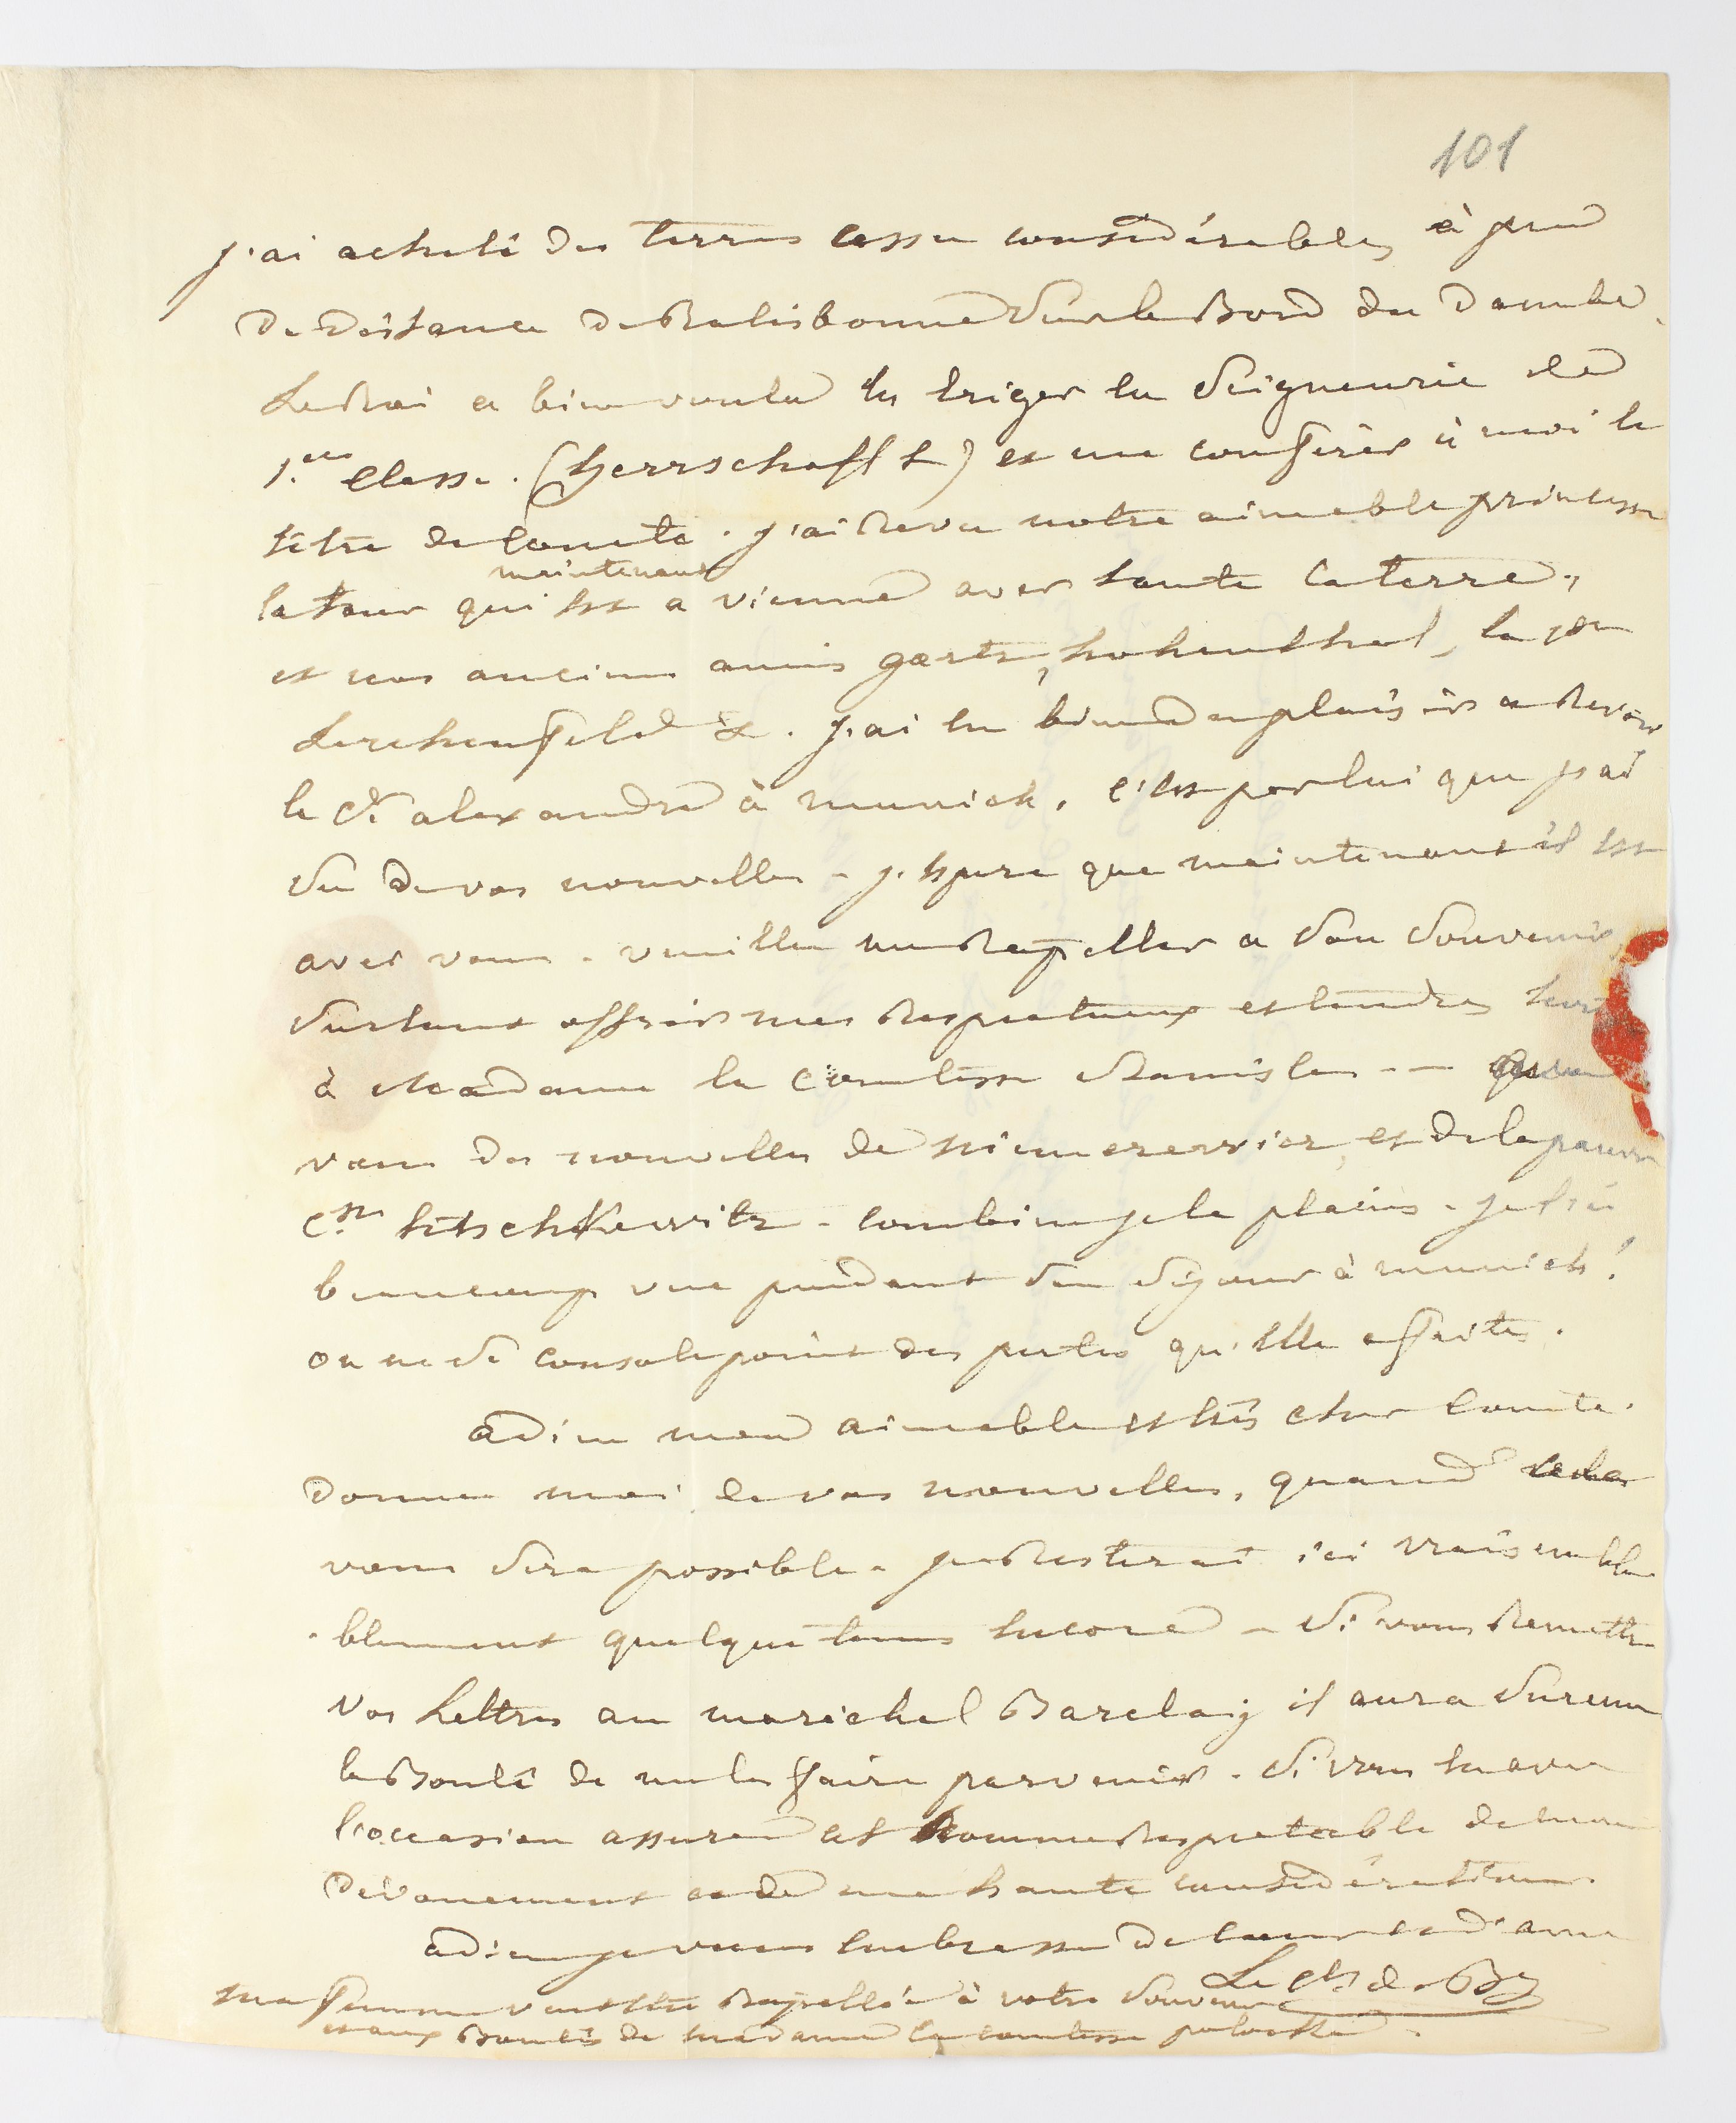 101
j'ai acheté des terres assez considérables à peu
de distance de Ratisbonne sur le Bord du Danube.
Le Roi a bien voulu les Eriger en Seigneurie de
1.ere classe. (Herrschafft) et me conferer à moi le
titre de Comte. j'ai Revu notre aimable princesse
maintenant
latour qui Est a vienne avec toute la terre,
et nos anciens amis goertz, hohenthal, la
Lerchenfeld &. j'ai Eu bien du plaisir a Revoir
le Ct alexandre à munich, c'Est par lui que j'ai
Su de vos nouvelles - j'Espere que maintenant il Est
avec vous - veuillez me Rappeller a Son Souvenir,
Surtout offrir mes Respectueux et tendres
à Madame la Comtesse Stanislas --
vous des nouvelles de niemcerervicz, et de la pauvre
C.sse titschkewitz - combien je la plains - je l'ai
beaucoup vue pendant Son Séjour à munich!
on ne Se console point des pertes qu'Elle a faites.
adieu mon aimable et très cher Comte.
Donnez moi de vos nouvelles, quand cela
vous Sera possible - je Resterai ici vraisembla
-blement quelque tems Encore - Si vous Remettez
vos Lettres au marechal Barclaij il aura Surement
la Bonté de me les faire parvenir - Si vous En avez
l'occasion assurez cet homme Respectable de mon
Dévouement et de ma haute considération.
adieu je vous Embrasse de coeur et d'ame
Le Cte de Bray
ma femme veut Etre Rappellée à votre Souvenir
et aux Bontés de madame la comtesse potocka.